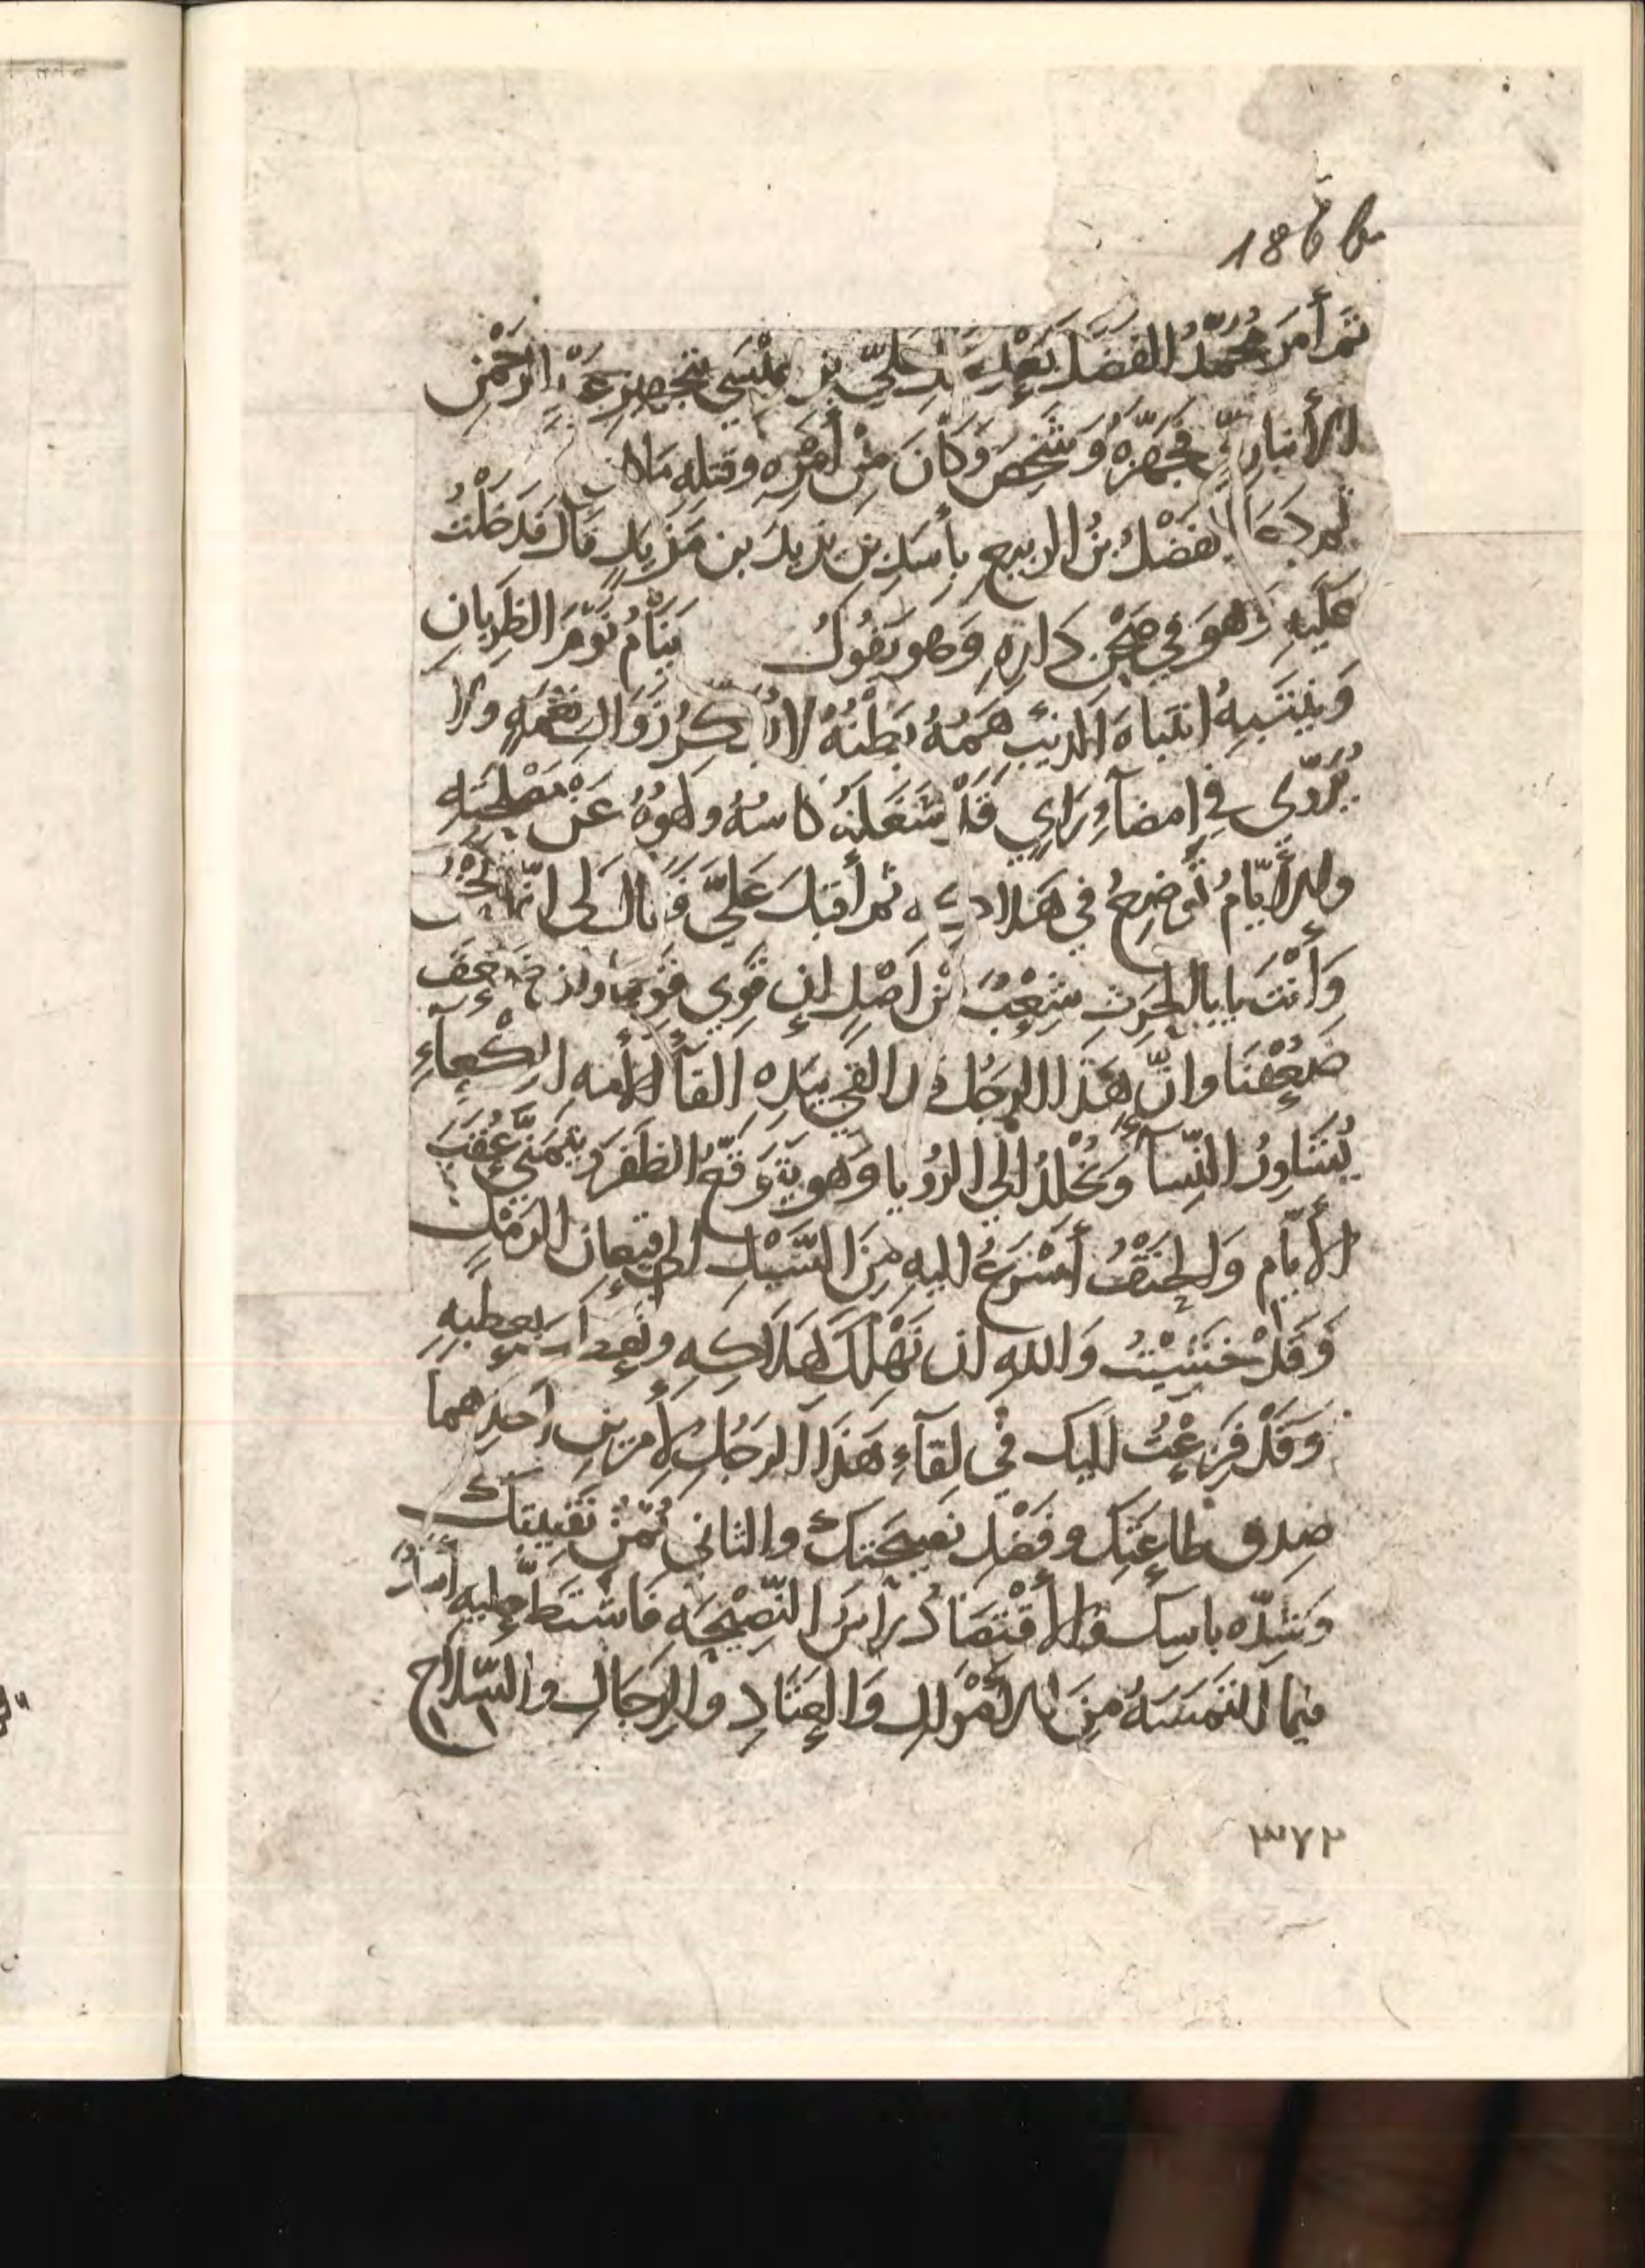 186 b
ثم أمر محمّدُ الفضل بعد علي بن عيسى بتجهيز عبد الرحمن
الأنباري فجهّزه وشخص وكان من أمره وقتله ما كان
الفضلُ بنُ الربيع بأسد بن يزيد بن مزيد قال فدخلتُ
عليه وهو في صحن داره وهو يقول ينامُ نومَ الظربان
وينتبهُ انتباهَ الذئب همّهُ بطنُهُ لا يفكر زوال نعمه ولا
يُروّي في امضآء رايٍ قد شغله كاسه ولهوُهُ عن مصلحته
والأيّامُ توضع في هلاكه ثم أقبل عليّ فقال لي انّما نحن
وأنت يابا الحرث شعبٌ من اصلٍ إن قوي قوينا وإن ضعف
ضعُفنا وانّ هذا الرجل قد القى بيده القآء الأمه الوكعآء
يُشاورُ النّسآء ويُخلدُ الى الرؤيا وهو يتوقّع الظفر ويتمنّى عُقب
الأيّام والحتفُ أسرعُ اليه من السّيل الى قيعان الرمل
وقد خشيتُ والله ان نهلك بهلاكه ونعطب بعطبه
وقد فزعتُ اليك في لقآء هذا الرجل لأمرين احدهما
صدق طاعتك وفضل نصيحتك والثاني يُمنُ نقيبتك
وشدّه باسك والأقتصادُ رأس النّصيحه فاشتطّ
فيما التمسه من الأموال والعتاد والرجال والسّلاح
٣٧٢